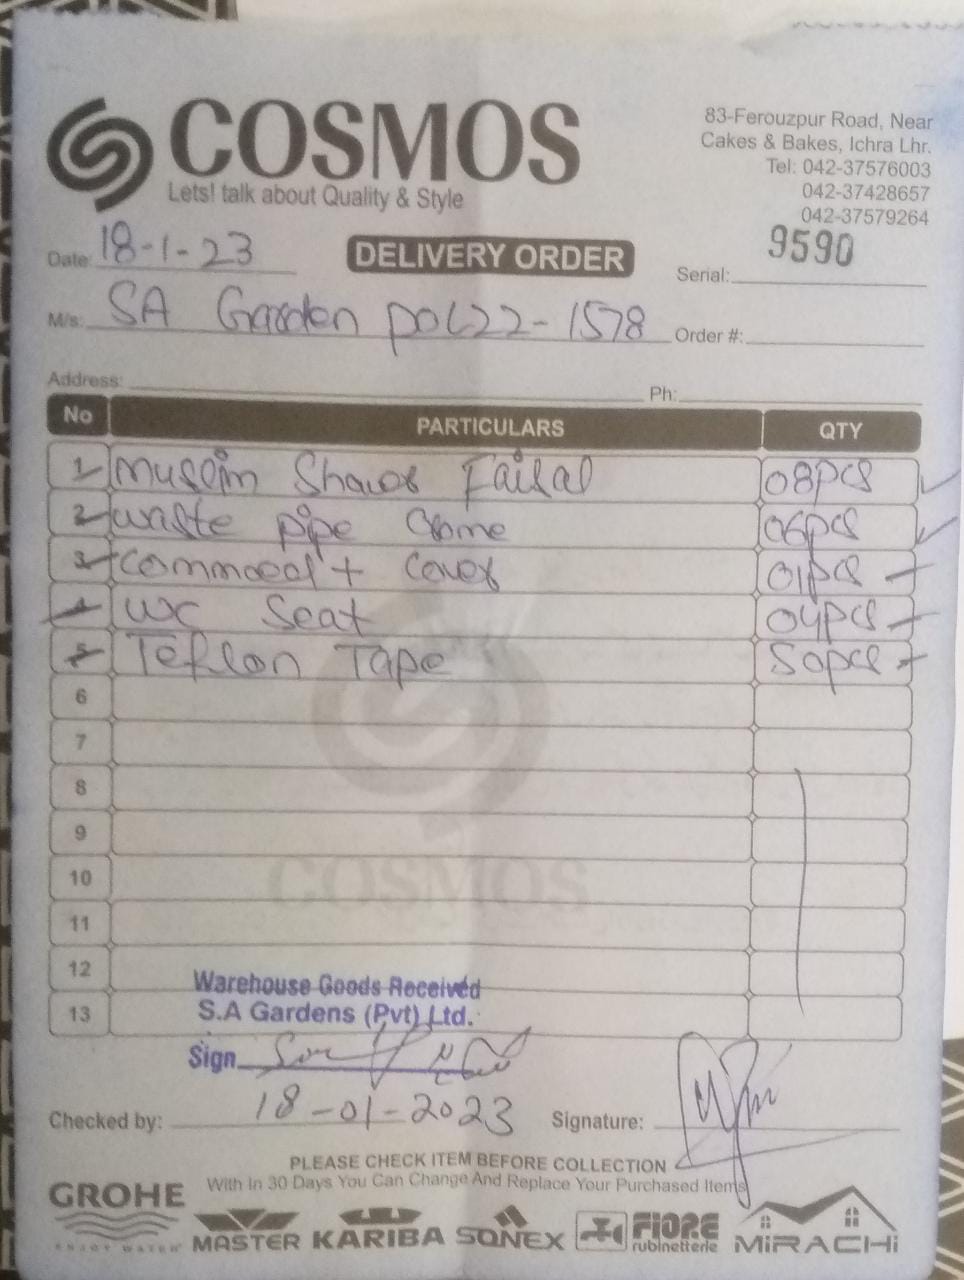 COSMOS
Lets! talk about Quality & Style
83-Ferouzpur Road, Near
Cakes & Bakes, Ichra Lhr.
Tel: 042-37576003
042-37428657
042-37579264
Date: 18-1-23
DELIVERY ORDER
Serial: 9590
M/s: SA Garden po222-1578 Order #:
Address: Ph:
No PARTICULARS QTY
1 Muslim Shower Faisal 08pcs
2 waste pipe Crome 06pcs
3 Commoed + Cover 01pcs
4 WC Seat 04pcs
5 Teflon Tape 50pcs
6
7
8
9
10
11
12
13
COSMOS
Warehouse Goods Received
S.A Gardens (Pvt) Ltd.
Sign
Checked by: 18-01-2023 Signature:
PLEASE CHECK ITEM BEFORE COLLECTION
With In 30 Days You Can Change And Replace Your Purchased Items
GROHE
ENJOY WATER
MASTER KARIBA SONEX FIORE rubinetterie MiRACHi